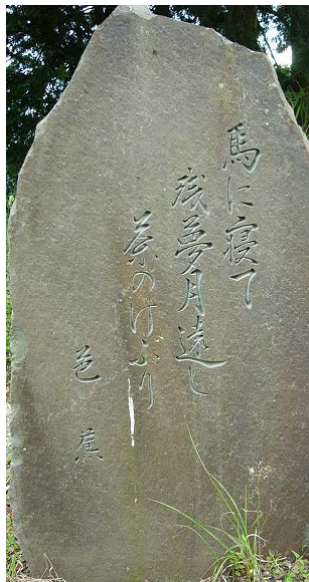 馬に寝て
残夢月遠し
茶のけぶり
芭蕉